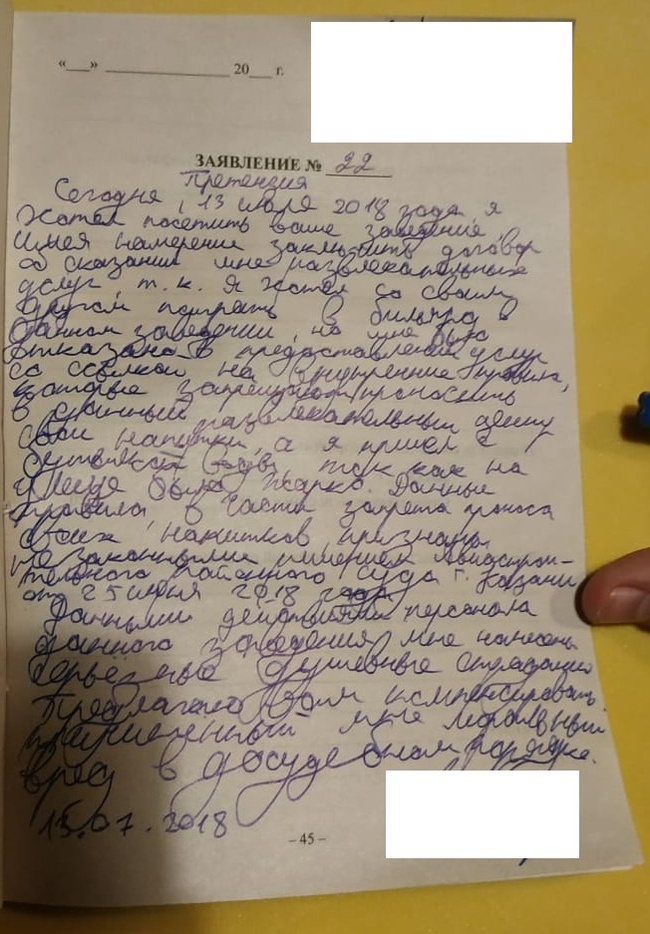 «___» ______________ 20___ г.
ЗАЯВЛЕНИЕ № 22
Претензия
Сегодня, 13 июля 2018 года, я
хотел посетить ваше заведение,
имея намерение заключить договор
об оказании мне развлекательных
услуг, т.к. я хотел со своим
другом поиграть в бильярд в
данном заведении, но мне было
отказано в предоставлении услуг
со ссылкой на внутренние правила,
которые запрещают проносить
в данный развлекательный центр
свои напитки, а я пришел с
бутылкой воды, так как на
улице было жарко. Данные
правила в части запрета проноса
своих напитков, признаны
незаконными решением Авиастрои-
тельного районного суда г. Казани
от 25 июня 2018 года.
Данными действиями персонала
данного заведения мне нанесены
серьезные душевные страдания
Предлагаю вам компенсировать
причиненный мне моральный
вред в досудебном порядке.
13.07.2018
– 45 –